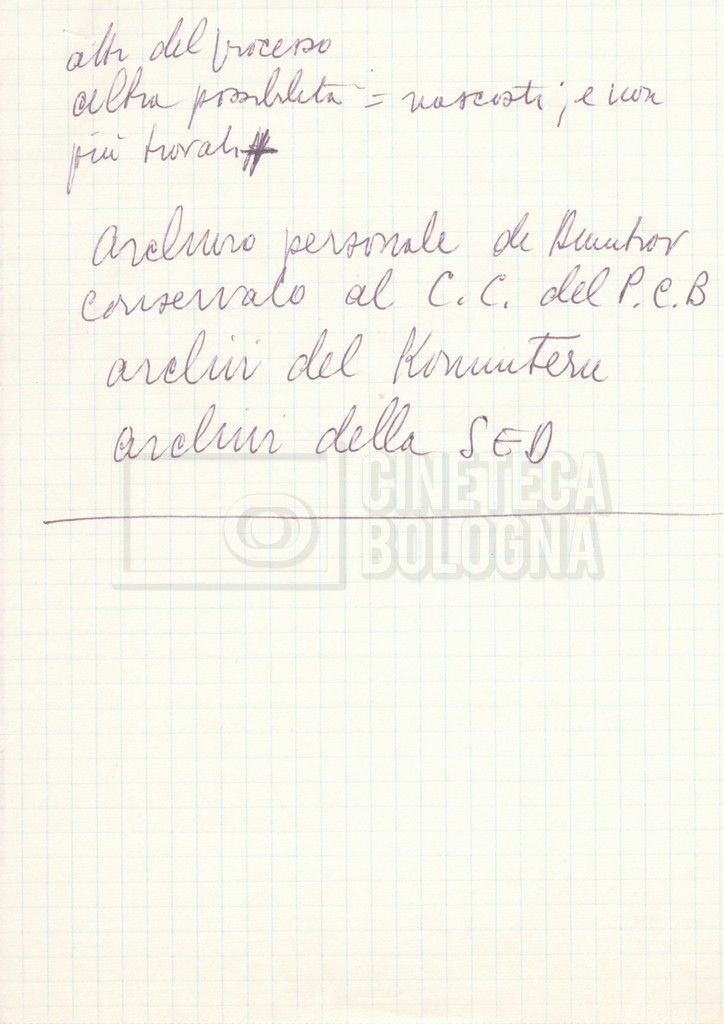 atti del processo
altra possibilità = nascosti; e non
più trovati
Archivio personale di Dimitrov
conservato al C.C. del P.C.B
archivi del Komintern
archivi della SED
CINETECA
BOLOGNA